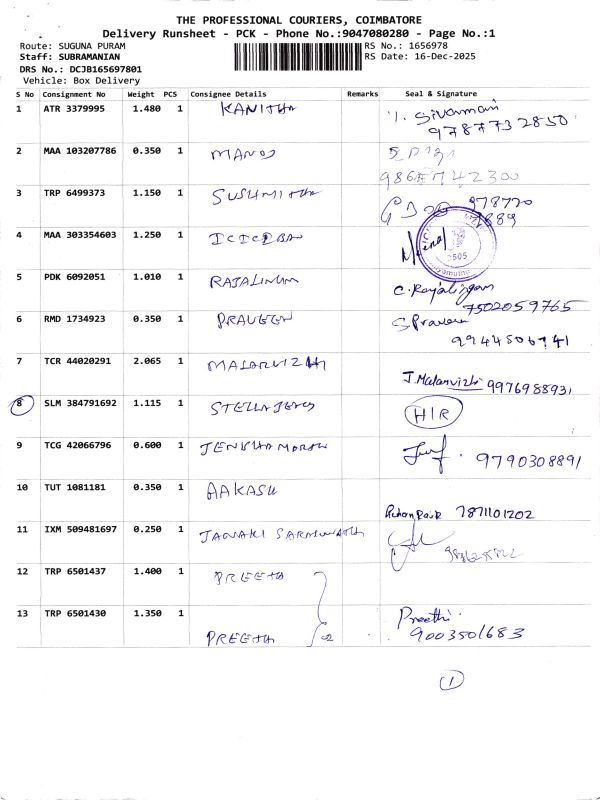 THE PROFESSIONAL COURIERS, COIMBATORE
Delivery Runsheet - PCK - Phone No.:9047080280 - Page No.:1
Route: SUGUNA PURAM RS No.: 1656978
Staff: SUBRAMANIAN RS Date: 16-Dec-2025
DRS No.: DCJB165697801
Vehicle: Box Delivery
S No Consignment No Weight PCS Consignee Details Remarks Seal & Signature
1 ATR 3379995 1.480 1 KANITHA 1. Sivamani
9787732850
2 MAA 103207786 0.350 1 MANOJ
742300
3 TRP 6499373 1.150 1 SUSHMITHA 978770
4 MAA 303354603 1.250 1 ICICI BAN
2505
5 PDK 6092051 1.010 1 RAJALINGAM C. Rajalingam
7502059765
6 RMD 1734923 0.350 1 PRAVEEN S Praveen
7 TCR 44020291 2.065 1 MALARVIZHI J. Malarvizhi 9976988931
8 SLM 384791692 1.115 1 STELLA H/R
9 TCG 42066796 0.600 1 9790308891
10 TUT 1081181 0.350 1 AAKASH 7871101202
11 IXM 509481697 0.250 1 JANAKI
12 TRP 6501437 1.400 1 PREETH
13 TRP 6501430 1.350 1 PREETH 2 Preethi
9003501683
1